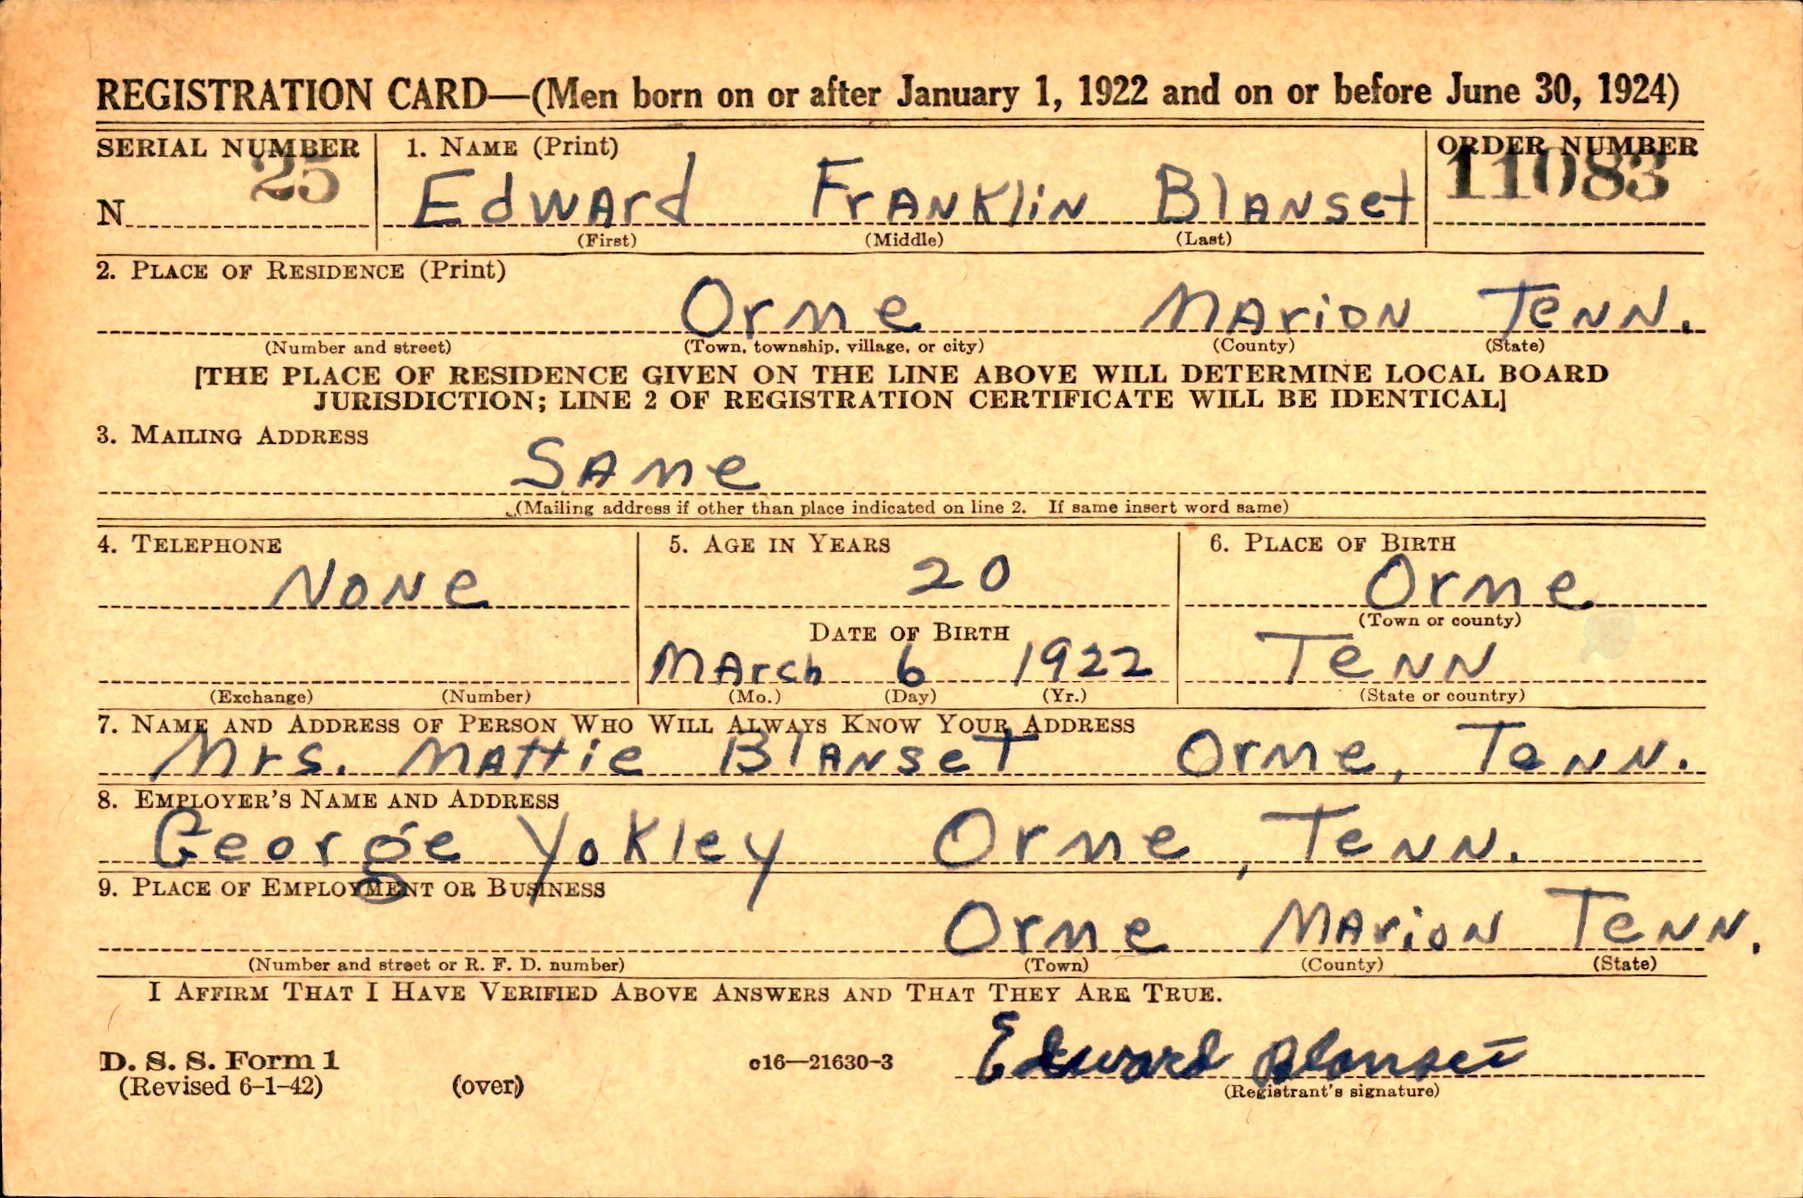 REGISTRATION CARD—(Men born on or after January 1, 1922 and on or before June 30, 1924)
SERIAL NUMBER 1. NAME (Print) ORDER NUMBER
N 25 Edward Franklin Blanset 11083
(First) (Middle) (Last)
2. PLACE OF RESIDENCE (Print)
Orme Marion Tenn.
(Number and street) (Town, township, village, or city) (County) (State)
[THE PLACE OF RESIDENCE GIVEN ON THE LINE ABOVE WILL DETERMINE LOCAL BOARD
JURISDICTION; LINE 2 OF REGISTRATION CERTIFICATE WILL BE IDENTICAL]
3. MAILING ADDRESS
Same
(Mailing address if other than place indicated on line 2. If same insert word same)
4. TELEPHONE 5. AGE IN YEARS 6. PLACE OF BIRTH
None 20 Orme
(Town or county)
DATE OF BIRTH
March 6 1922 Tenn
(Exchange) (Number) (Mo.) (Day) (Yr.) (State or country)
7. NAME AND ADDRESS OF PERSON WHO WILL ALWAYS KNOW YOUR ADDRESS
Mrs. Mattie Blanset Orme, Tenn.
8. EMPLOYER'S NAME AND ADDRESS
George Yokley Orme, Tenn.
9. PLACE OF EMPLOYMENT OR BUSINESS
Orme Marion Tenn.
(Number and street or R. F. D. number) (Town) (County) (State)
I AFFIRM THAT I HAVE VERIFIED ABOVE ANSWERS AND THAT THEY ARE TRUE.
D. S. S. Form 1 c16—21630-3 Edward Blanset
(Revised 6-1-42) (over) (Registrant's signature)